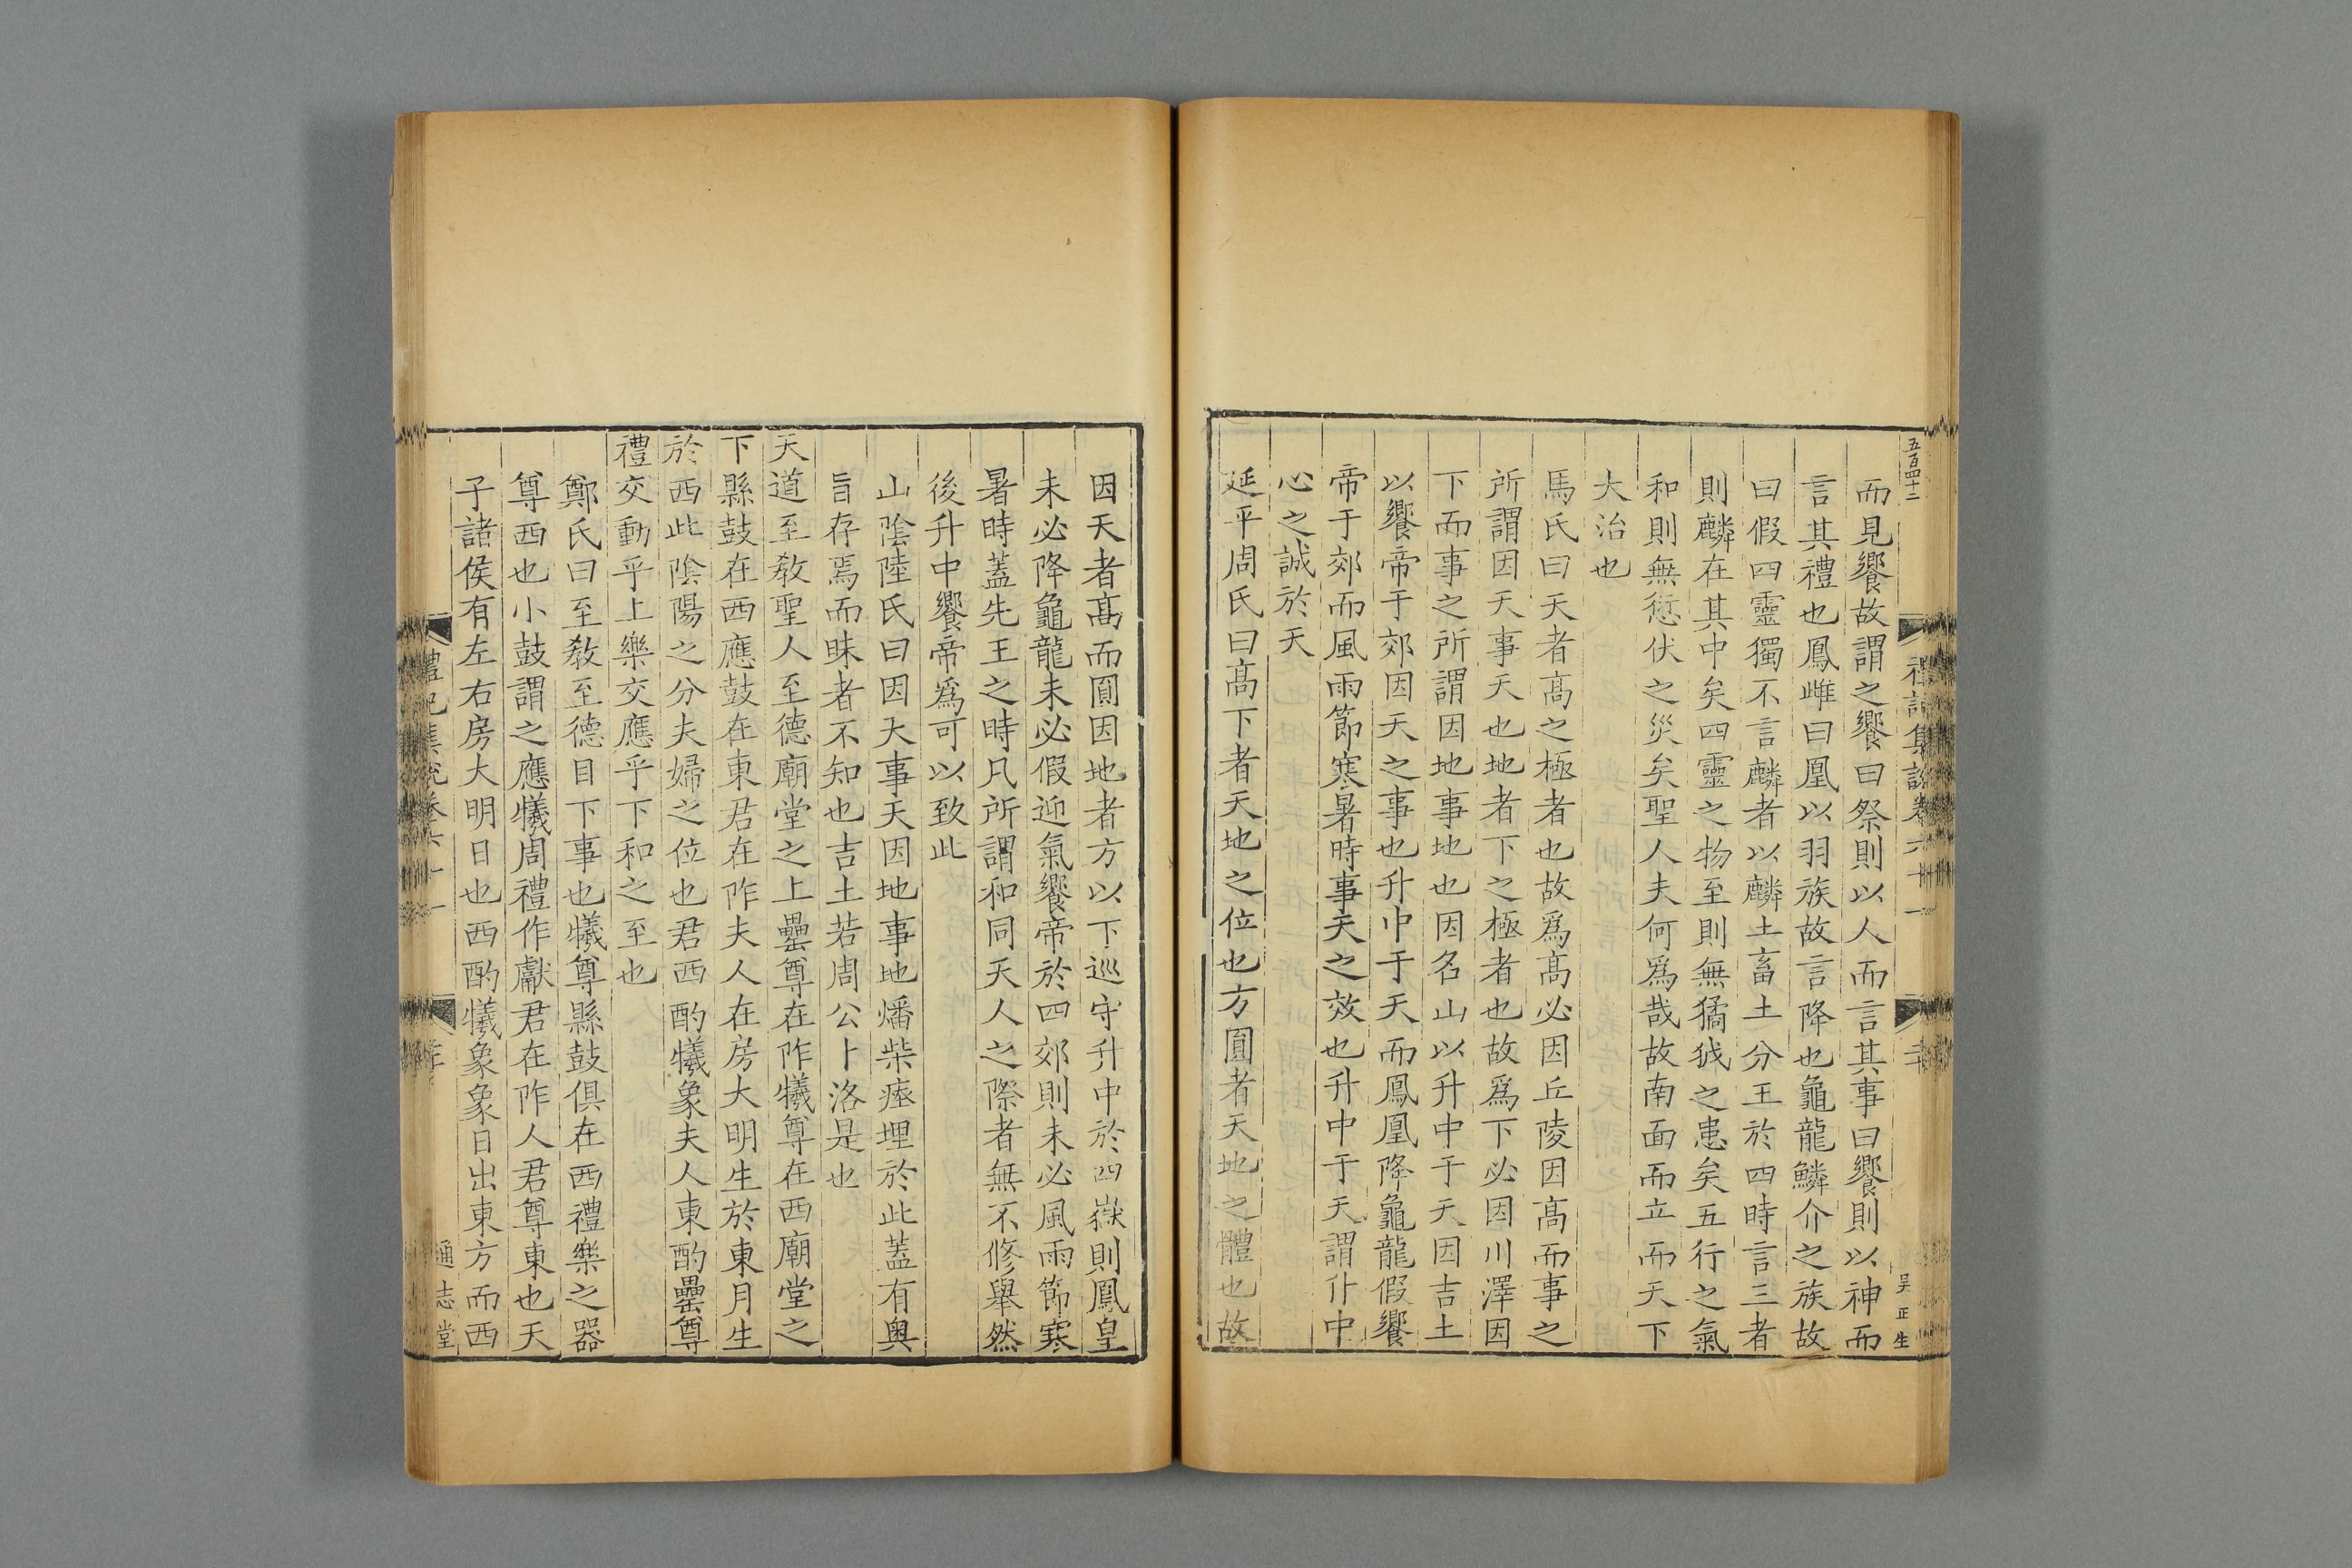 五百四十二
而見饗故謂之饗曰祭則以人而言其事曰饗則以神而
言其禮也鳳雌曰凰以羽族故言降也龜龍鱗介之族故
曰假四靈獨不言麟者以麟土畜土分王於四時言三者
則麟在其中矣四靈之物至則無獝狘之患矣五行之氣
和則無愆伏之災矣聖人夫何爲哉故南面而立而天下
大治也
馬氏曰天者髙之極者也故爲髙必因丘陵因髙而事之
所謂因天事天也地者下之極者也故爲下必因川澤因
下而事之所謂因地事地也因名山以升中于天因吉土
以饗帝于郊因天之事也升中于天而鳳凰降龜龍假饗
帝于郊而風雨節寒暑時事天之效也升中于天謂什中
心之誠於天
延平周氏曰髙下者天地之位也方圓者天地之體也故
禮記集說卷六十一
吴正生
因天者髙而圓因地者方以下巡守升中於四嶽則鳳皇
未必降龜龍未必假迎氣饗帝於四郊則未必風雨節寒
暑時蓋先王之時凡所謂和同天人之際者無不修舉然
後升中饗帝爲可以致此
山陰陸氏曰因天事天因地事地燔柴瘞埋於此蓋有奥
旨存焉而昧者不知也吉土若周公卜洛是也
天道至敎聖人至德廟堂之上罍尊在阼犧尊在西廟堂之
下縣鼓在西應鼓在東君在阼夫人在房大明生於東月生
於西此陰陽之分夫婦之位也君西酌犧象夫人東酌罍尊
禮交動乎上樂交應乎下和之至也
鄭氏曰至敎至德目下事也犧尊縣鼓俱在西禮樂之器
尊西也小鼓謂之應犧周禮作獻君在阼人君尊東也天
子諸侯有左右房大明日也西酌犧象象日出東方而西
禮記集說卷六十一
通志堂